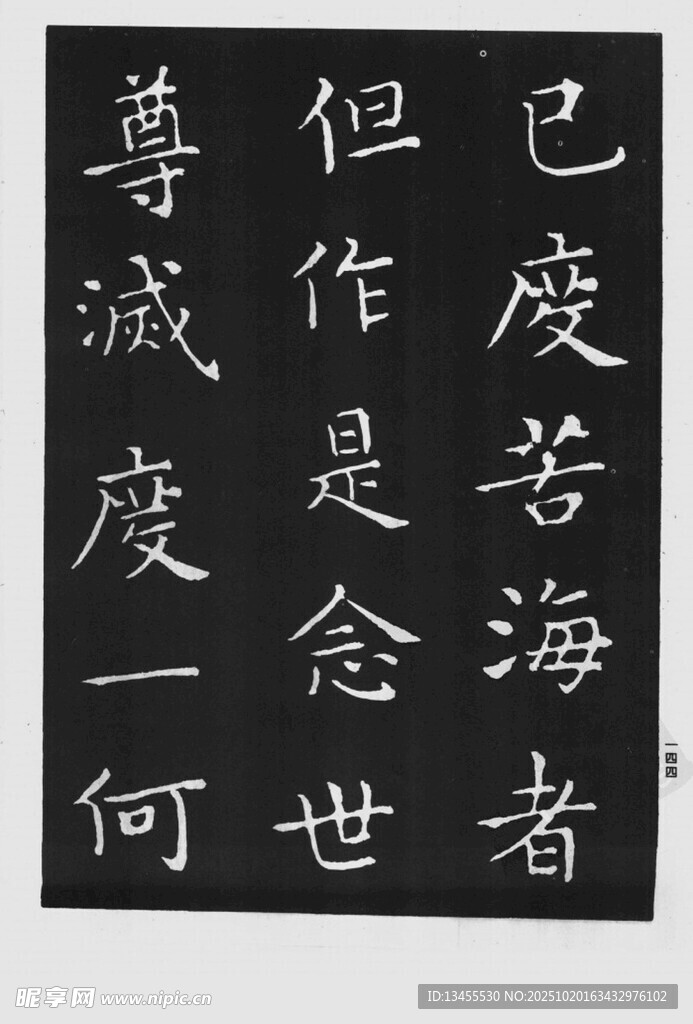 已度苦海者
但作是念世
尊滅度一何
一四四
昵享网 www.nipic.cn
ID:13455530 NO:20251020163432976102